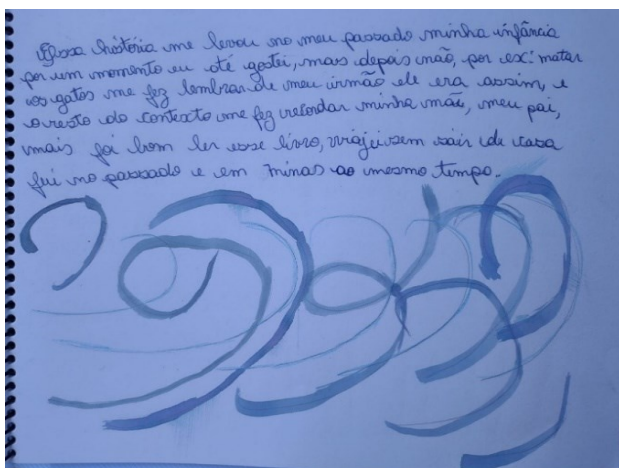 Essa história me levou no meu passado minha infância
por um momento eu até gostei, mas depois não, por ex: matar
os gatos me fez lembrar de meu irmão ele era assim, e
o resto do contexto me fez recordar minha mãe, meu pai,
mais foi bom ler esse livro, viajei sem sair de casa
fui no passado e em minas ao mesmo tempo.